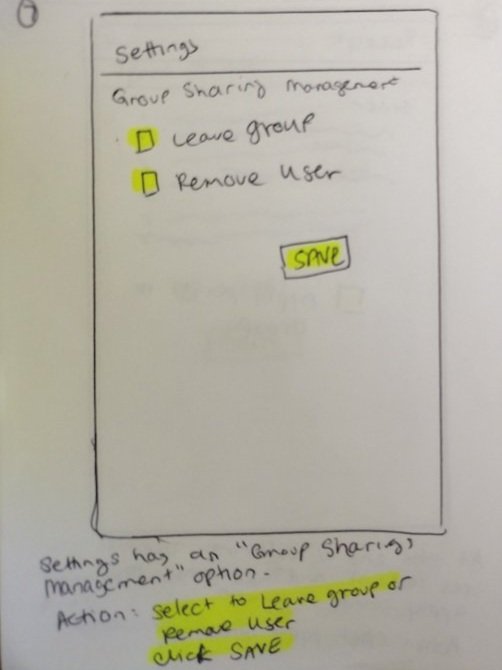 7
Settings
Group Sharing Management
Leave group
Remove User
SAVE
Settings has an "Group Sharing
Management" option.
Action: Select to Leave group or
Remove User
Click SAVE